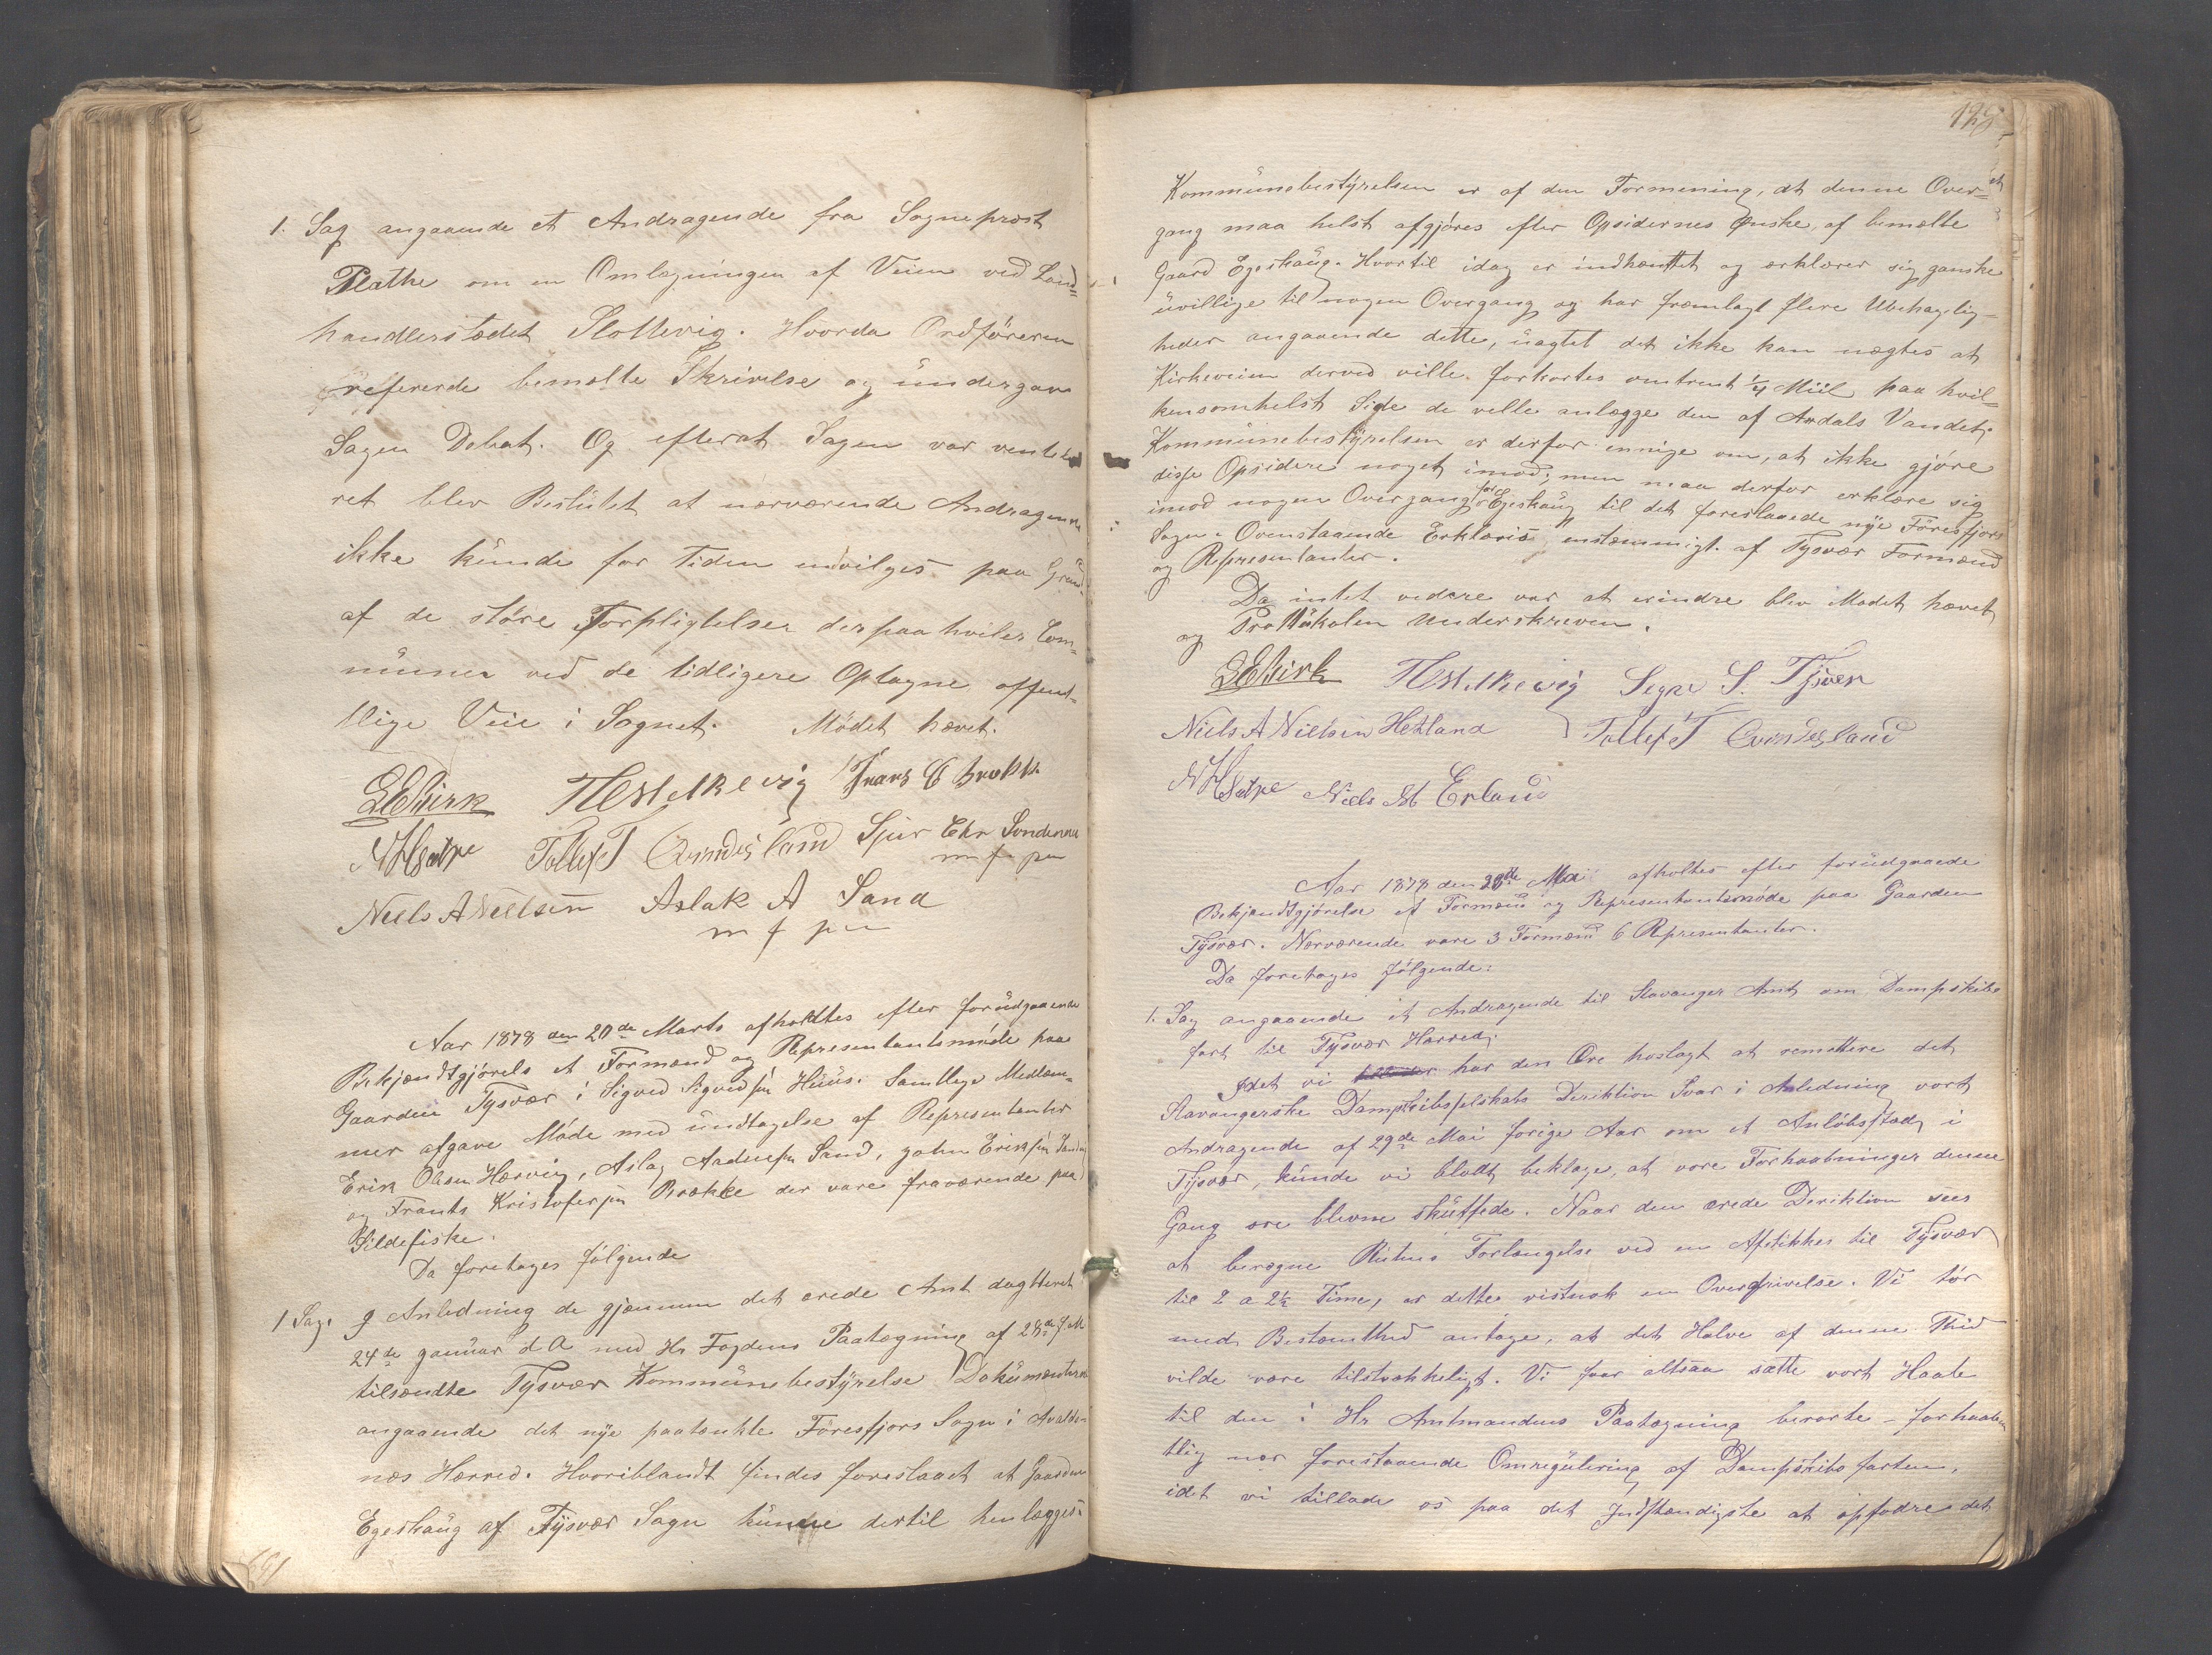 1. Sag angaaende et Andragende fra Sogneprest
Plathe om en Omlægningen af Veien ved Land=
handlerstædet Slottevig. Hvorda Ordføreren
refererede bemælte Skrivelse og undergav
Sagen Debat. Og efterat Sagen var ventile
ret blev Beslutet at nærværende Andragende
ikke kunde for Tiden indvilges paa Grund
af de støre Forpligtelser der paa hviler Com=
münen ved de tidligere Optagne offent=
llige Veie i Sognet. Mødet hævet.
LEBirk THesthevig Frans C Brekke
NHSætre TollefT Qvindesland Sjur Chr Søndenaa
m f pen
Niels A Nielsen Aslak A Sand
m f pen
Aar 1878 den 20de Marts afholdtes efter forüdgaaende
Bekjændtgjørels et Formænd og Representantsmøde paa
Gaarden Tysvær i Sigved Sigvedsen Hüüs. Samtlige Medlem=
mer afgave Møde med undtagelse af Representanter
Erik Olsen Hærvig, Aslag Aadnesen Sand, John Eriksen
og Frants Kristofersen Brække der vare fraværende paa
Sildefiske.
Da foretages følgende
1 Sag. I Anledning de gjænnem det ærede Amt dagtteret
24de Januar d A med Hr Fogdens Paategning af 28de f. M
tilsendte Tysvær Kommünebestyrelse Dokümenterne
angaaende det nye paatænkte Føresfjors Sogn i Avalds=
nes Hærred. Hvoriblandt findes foreslaaet at Gaarden
Egeskaug af Tysvær Sogn kunne dertil henlægges.
129
Kommünebestyrelsen er af den Formening, at denne Over=
gang maa helst afgjøres efter Opsidernes Ønske, af bemælte
Gaard Egeskaug. Hvortil idag er indhæntet og ærklærer sig ganske
uvillige til nogen Overgang og har fræmlagt flere Ubehagelig=
heder angaaende dette, üagtet det ikke kan nægtes at
Kirkeveien derved ville forkortes omtrent 1/4 Miil paa hvil=
kensomhelst Side de velle anlægge den af Aardals Vandet.
Kommünebestyrelsen er derfor ennige om, at ikke gjøre
disse Opsidere noget imod; men maa derfor erklære sig
imod nogen Overgang for Egeskaug til det foreslaaede nye Føresfjors
Sogn. Ovenstaaende Erklæris enstæmmigt af Tysvær Formænd
og Representanter.
Da intet vedere var at erindre blev Mødet hævet
og Prottokolen underskreven.
LEBirk THesthevig Segne S. Tjsvær
Niels A Nielsen Hetland TollefT Qvindesland
NHSætre Niels M Erland
Aar 1878 den 28de Mai afholtes efter forüdgaaende
Bekjændtgjørelse et Formæn og Representantsmøde paa Gaarden
Tysvær. Nærværende vare 3 Formænd 6 Representanter.
Da foretages følgende:
1. Sag angaaende et Andragende til Stavanger Amt om Dampskibs
fart til Tysvær Hærred.
Idet vi har den Ære hoslagt at remittere det
Stavangerske Dampskibsselskabs Deriktion Svar i Anledning vort
Andragende af 29de Mai forige Aar om et Anløbsstad i
Tysvær, kunde vi blodt beklage, at vore Forhaabninger denne
Gang ere blevne skuffede. Naar den ærede Deriktion sees
at beregne Rutens Forlængelse ved en Afstikker til Tysvær
til 2 a 2½ Time, er dette vistnok en Overdrivelse. Vi tør
med Bestæmthed antage, at det Halve af denne Thid
vilde være tilstrækkeligt. Vi faar altsaa sætte vort Haab
til den i Hr Amtmandens Paategning berørte – forhaaben
tlig nær forestaaende Omregülering af Dampskibsfarten,
idet vi tillade os paa det Indstændigste at opfodre det